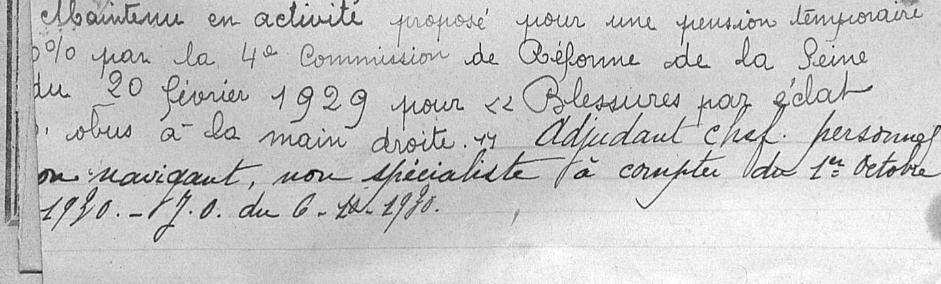 Maintenu en activité proposé pour une pension temporaire
0% par la 4e Commission de Réforme de la Seine
du 20 février 1929 pour << Blessures par éclat
obus à la main droite. >> Adjudant chef. personnel
non navigant, non spécialiste à compter du 1er Octobre
1930. - J.O. du 6 1930.